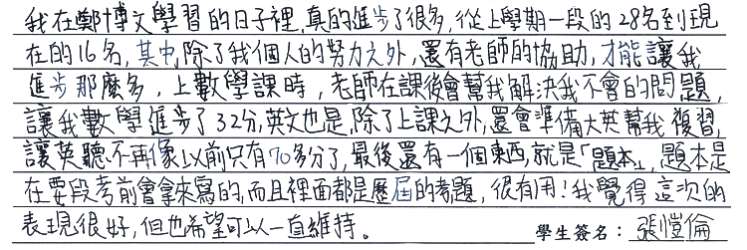 我在鄭博文學習的日子裡,真的進步了很多,從上學期一段的28名到現
在的16名,其中,除了我個人的努力之外,還有老師的協助,才能讓我
進步那麼多,上數學課時,老師在課後會幫我解決我不會的問題,
讓我數學進步了32分,英文也是,除了上課之外,還會準備大英幫我複習,
讓英聽不再像以前只有70多分了,最後還有一個東西,就是「題本」,題本是
在要段考前會拿來寫的,而且裡面都是歷屆的考題,很有用!我覺得這次的
表現很好,但也希望可以一直維持。 學生簽名:張愷倫